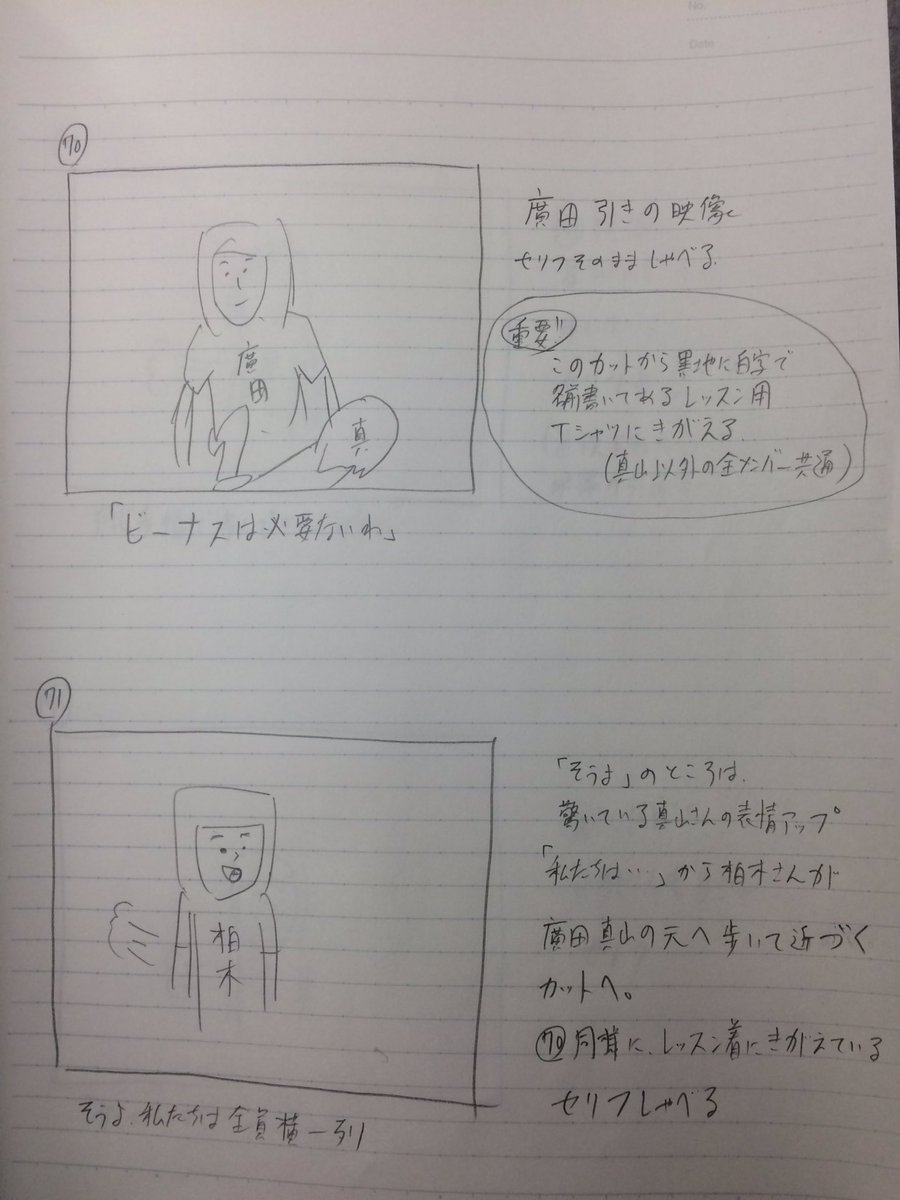 No.
Date
70
廣田
真
廣田 引きの映像
セリフそのまましゃべる
重要!!
このカットから黒地に白字で
名前書いてあるレッスン用
Tシャツにきがえる
(真山以外の全メンバー共通)
「ビーナスは必要ないわ」
71
柏木
「そうよ」のところは、
驚いている真山さんの表情アップ
「私たちは…」から柏木さんが
廣田真山の元へ歩いて近づく
カットへ。
70同様に、レッスン着にきがえている
セリフしゃべる
そうよ、私たちは全員横一列